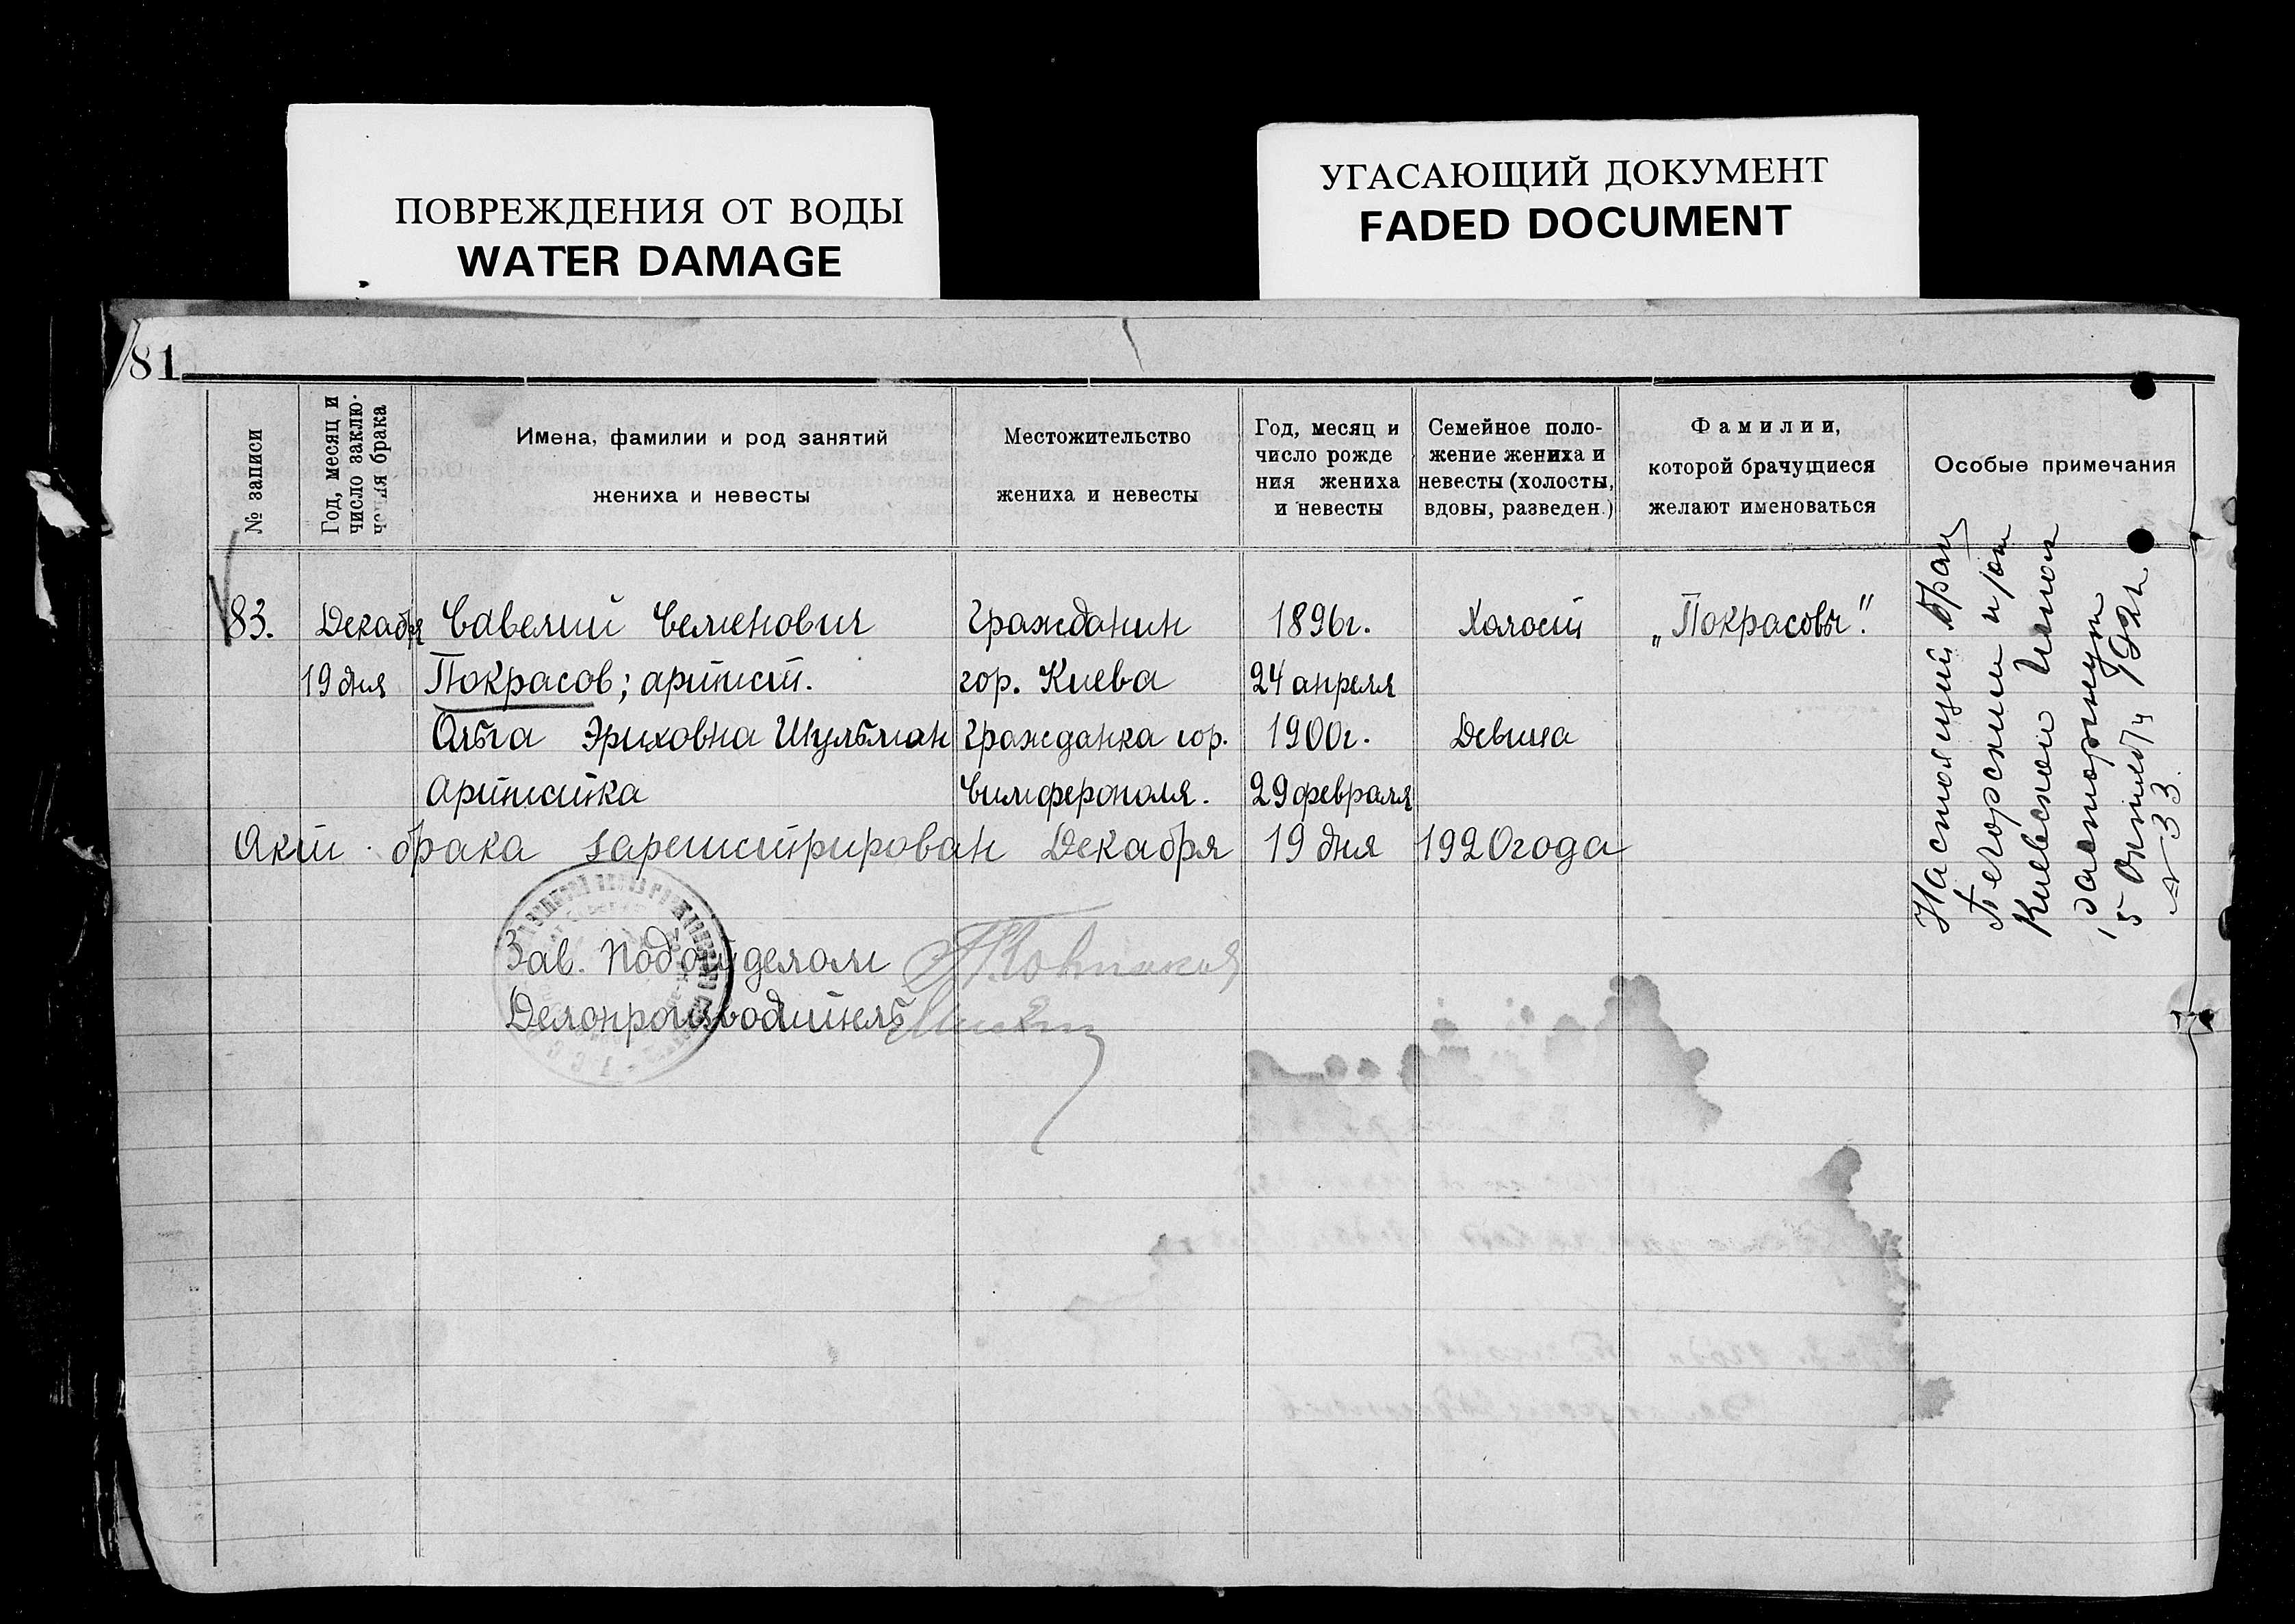 ПОВРЕЖДЕНИЯ ОТ ВОДЫ
WATER DAMAGE
УГАСАЮЩИЙ ДОКУМЕНТ
FADED DOCUMENT
81
№ записи
Год, месяц и
число заклю-
чения брака
Имена, фамилии и род занятий
жениха и невесты
Местожительство
жениха и невесты
Год, месяц и
число рожде
ния жениха
и невесты
Семейное поло-
жение жениха и
невесты (холосты,
вдовы, разведен.)
Фамилии,
которой брачущиеся
желают именоваться
Особые примечания
83. Декабря Савелий Семенович Гражданин 1896г. Холост „Покрасовы".
19 дня Покрасов; артист. гор. Киева 24 апреля
Ольга Эриховна Шульман Гражданка гор. 1900г. Девица
артистка Симферополя. 29 февраля
Акт брака зарегистрирован Декабря 19 дня 1920 года
Зав. Подотделом
Делопроизводитель
Настоящий брак
Печорским
Киевской
расторгнут
5 Октября 192
№ 33.